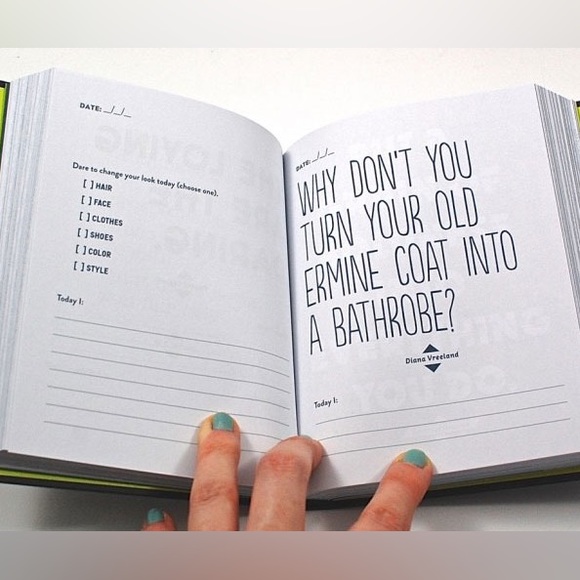 DATE: _/_/_
Dare to change your look today (choose one).
[ ] HAIR
[ ] FACE
[ ] CLOTHES
[ ] SHOES
[ ] COLOR
[ ] STYLE
Today I:
DATE: _/_/_
WHY DON'T YOU
TURN YOUR OLD
ERMINE COAT INTO
A BATHROBE?
Diana Vreeland
Today I: